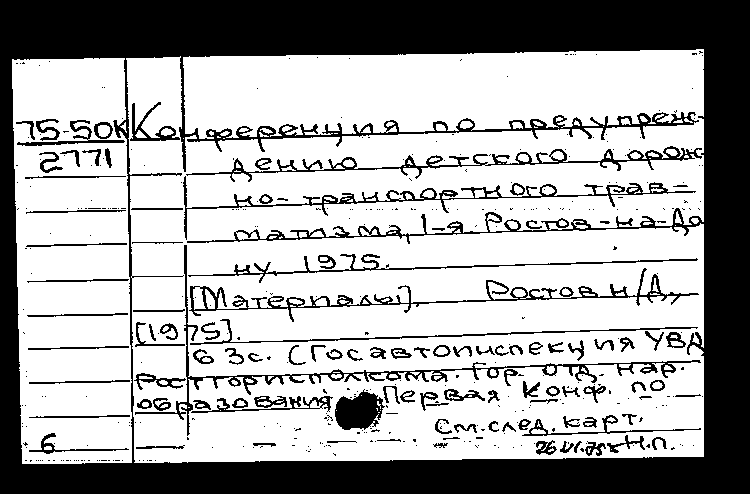 75-50К Конференция по предупреж-
2771 дению детского дорож-
но-транспортного трав-
матизма, 1-я. Ростов-на-До
ну. 1975.
[Материалы]. Ростов н/Д.,
[1975].
63с. (Госавтоинспекция УВД
Ростгорисполкома. Гор. отд. нар.
образования. Первая Конф. по
См. след. карт.
6 26.VI.75г Н.п.